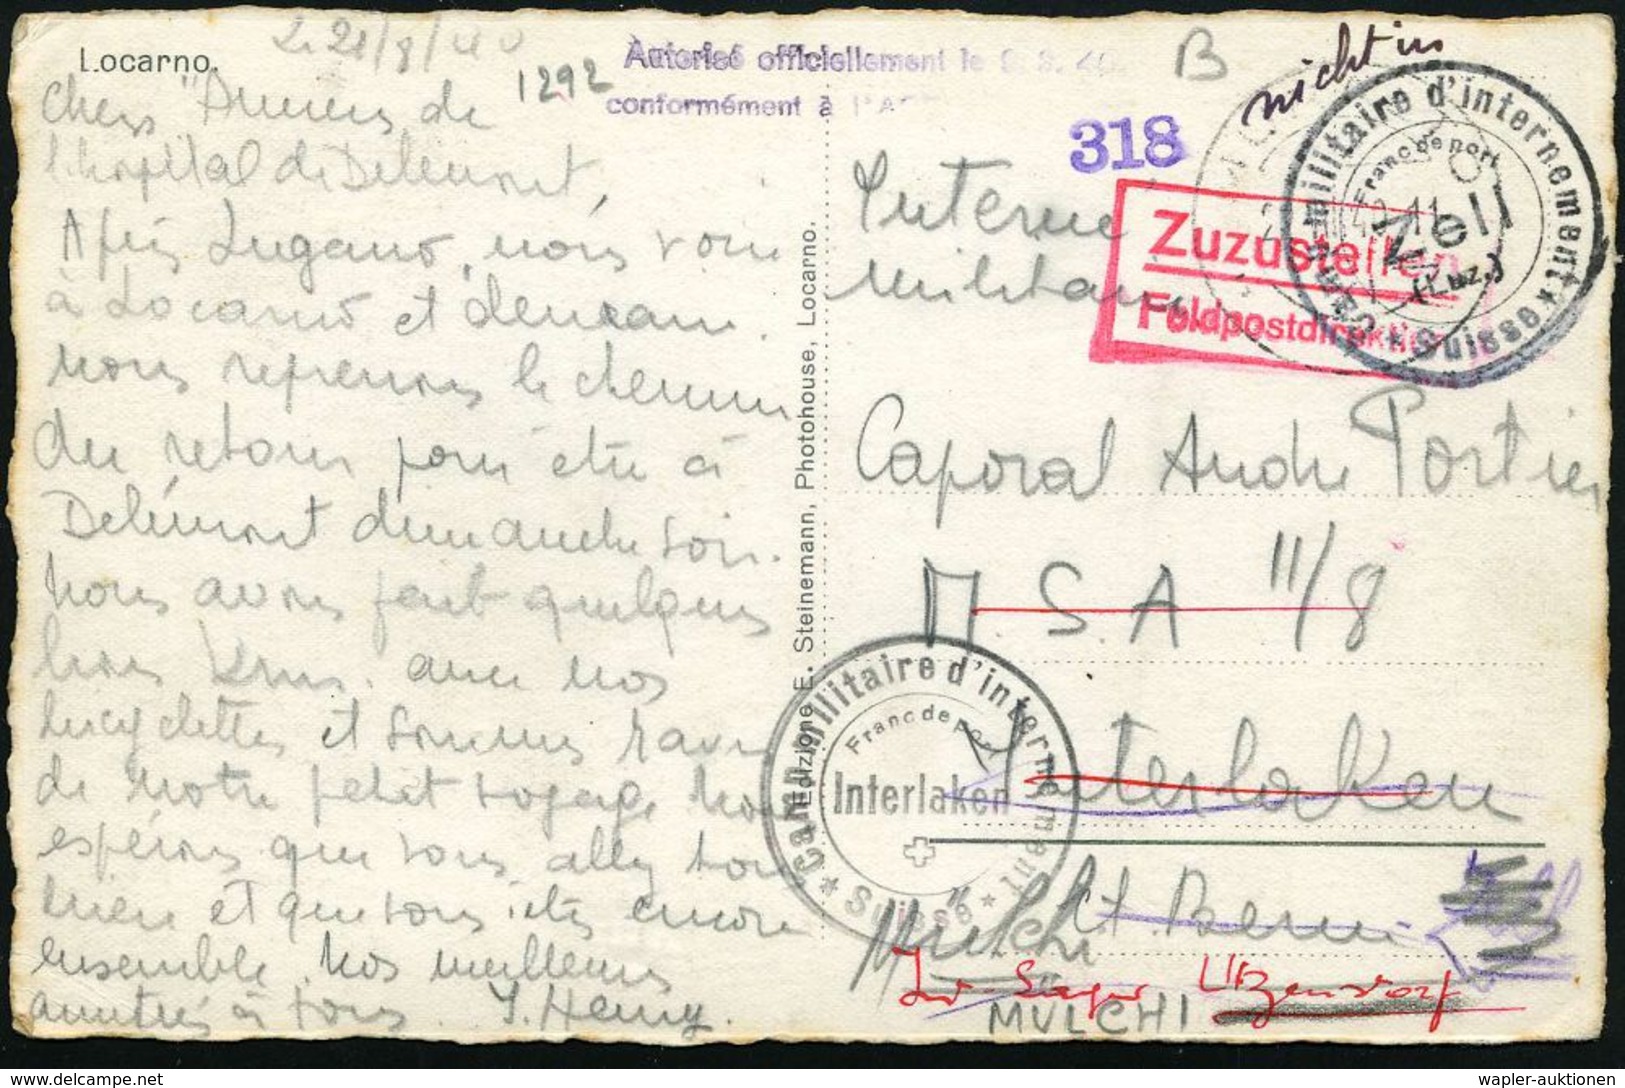 Locarno.
21/8/40
1292
Autorisé officiellement le
conformément à
B
nicht in
318
Chers "Anciens de
l'hopital de Delemont,
Après Lugano, nous voici
à Locarno et demain
nous reprenons le chemin
du retour pour être à
Delémont dimanche soir.
Nous avons fait quelques
bons avec nos
bicyclettes et sommes ravis
de notre petit voyage. Nous
espérons que vous allez tous
bien et que vous êtes encore
ensemble. Nos meilleures
amitiés à tous. J. Henry.
Edizione E. Steinemann, Photohouse, Locarno.
Camp militaire d'internement
Franc de port
Zell
(Luz.)
Suisse
Zuzustellen
Feldpostdirektion
Interné
Militaire
Caporal André Portier
M S.A III/8
Interlaken
Ct. Bern
Camp militaire d'internement
Franc de port
Interlaken
Suisse
Mülchi
Int. Lager Utzensdorf
MULCHI
wapler-auktionen